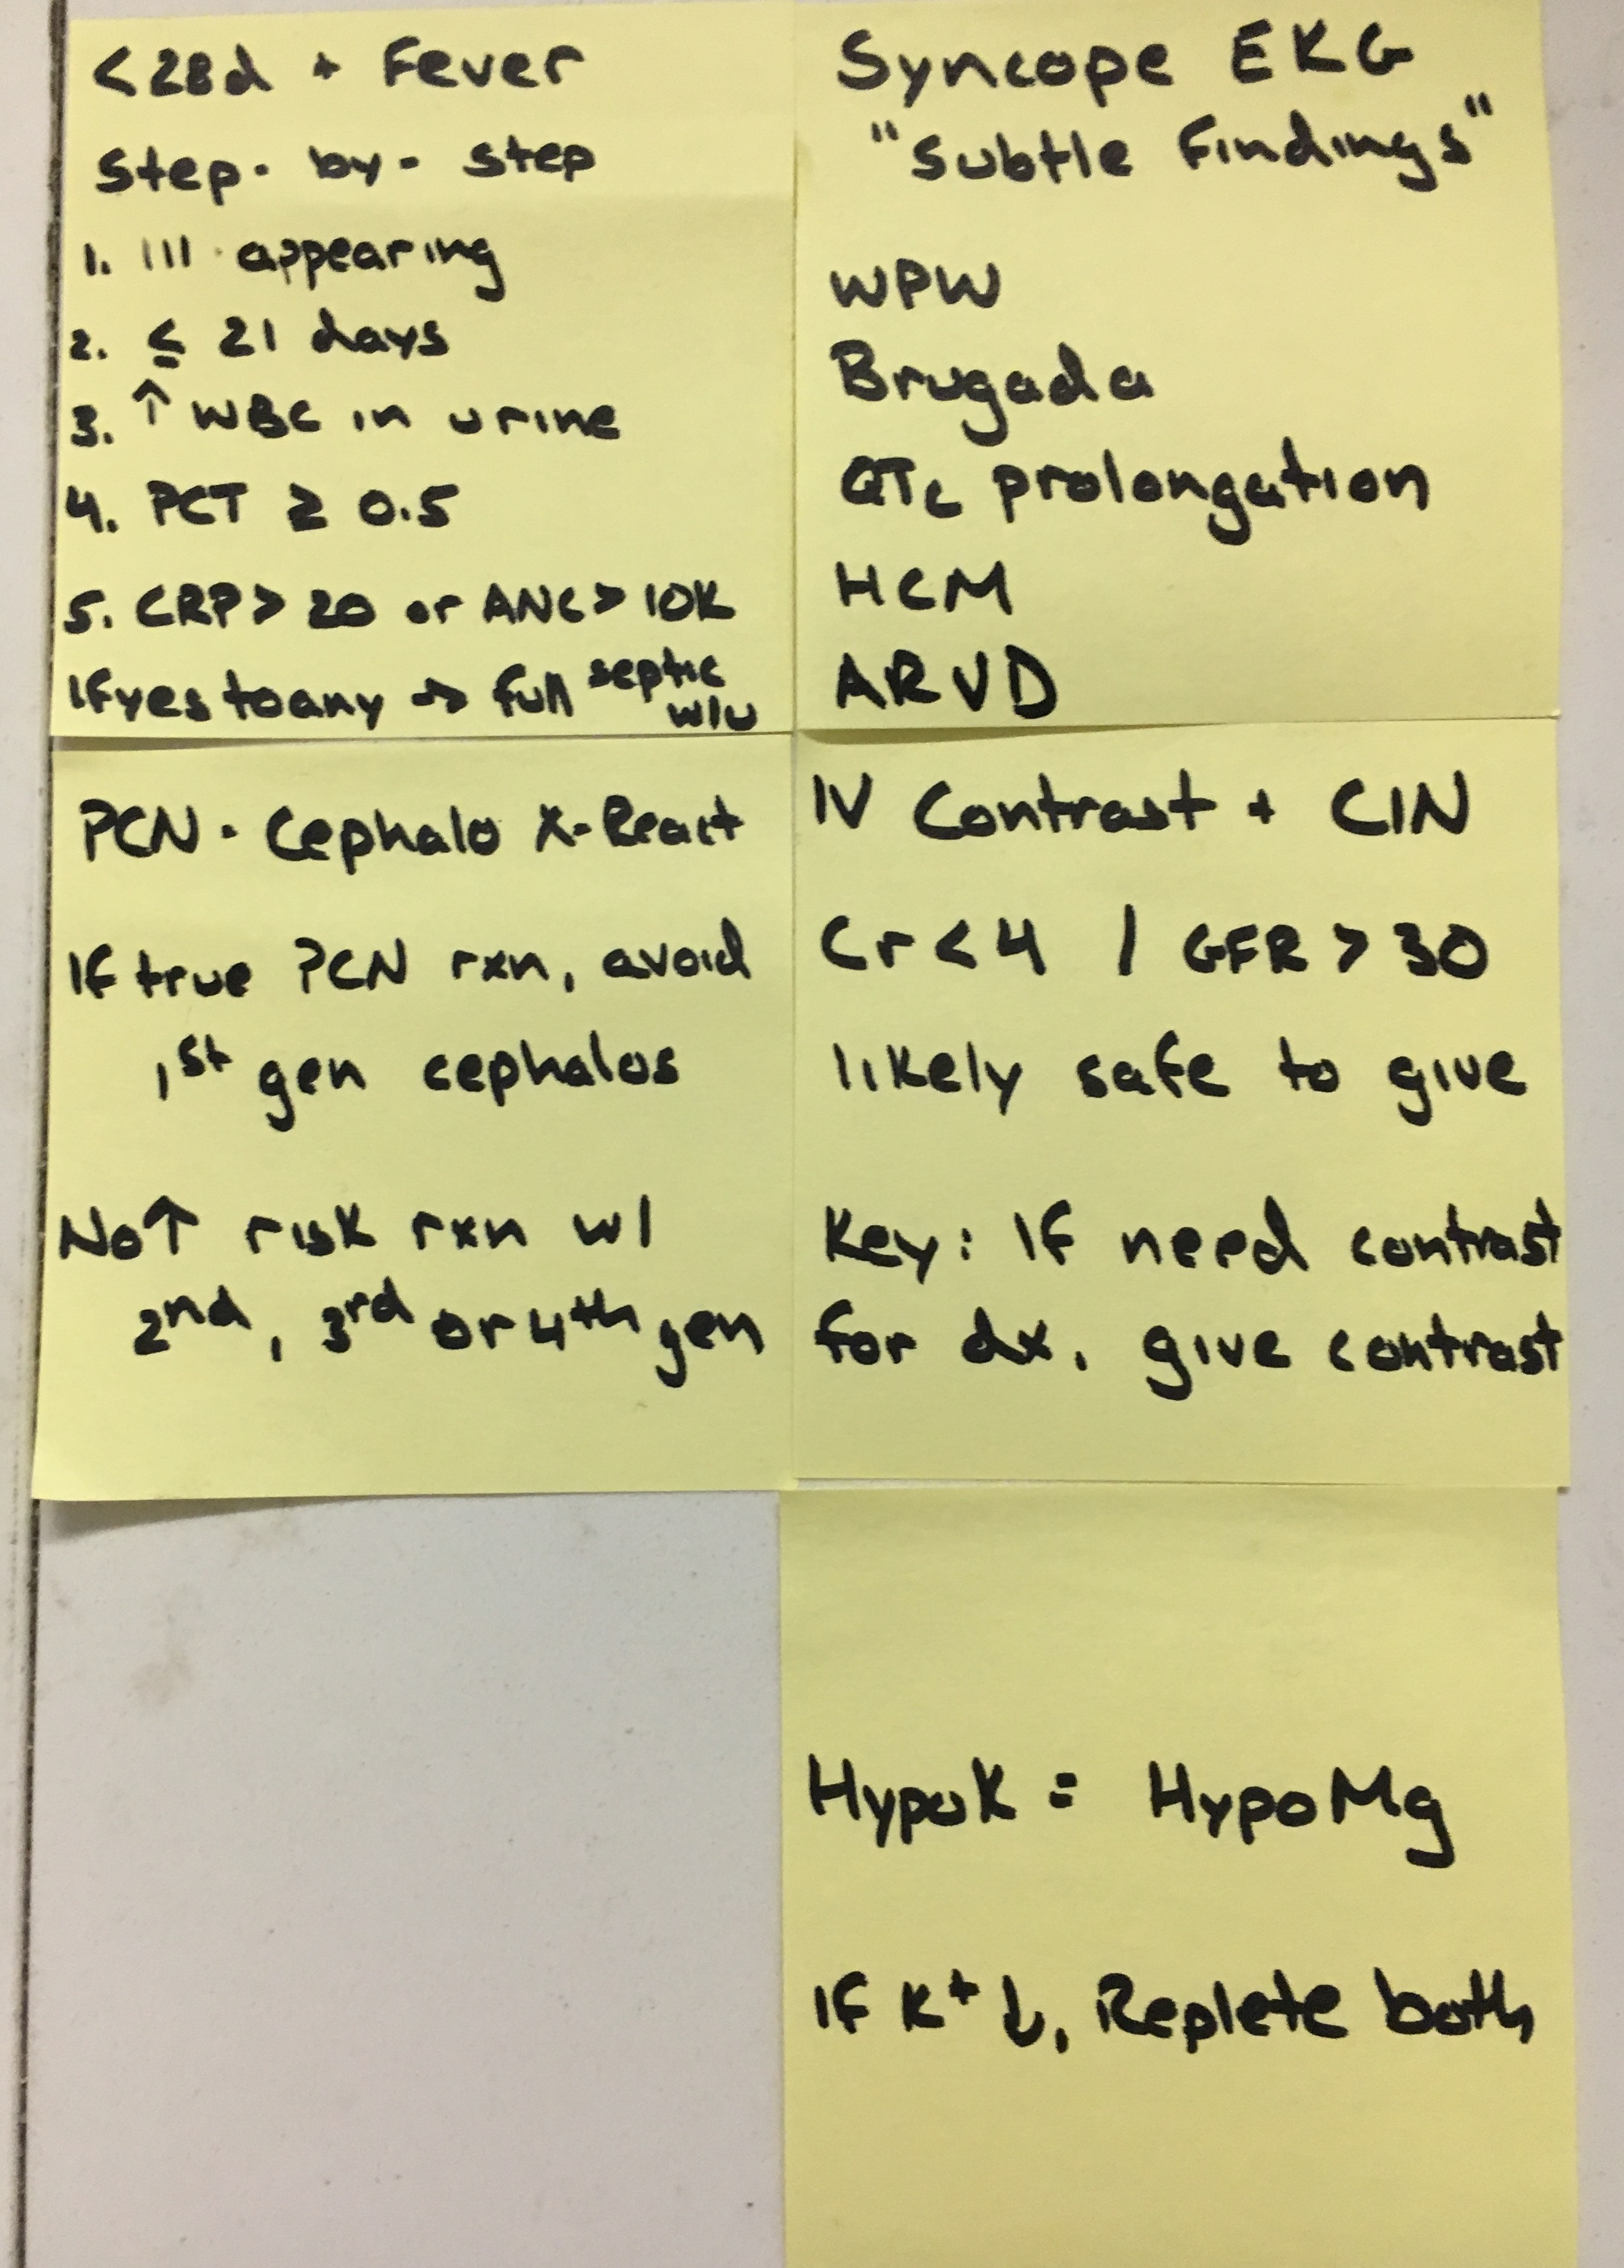 <28d + Fever
Step-by-step
1. Ill appearing
2. ≤ 21 days
3. ↑ WBC in urine
4. PCT ≥ 0.5
5. CRP > 20 or ANC > 10K
If yes to any → full septic w/u
Syncope EKG
"Subtle Findings"
WPW
Brugada
QTc prolongation
HCM
ARVD
PCN - Cephalo X-React
If true PCN rxn, avoid
1st gen cephalos
No ↑ risk rxn w/
2nd, 3rd or 4th gen
IV Contrast + CIN
Cr < 4 / GFR > 30
likely safe to give
Key: If need contrast
for dx, give contrast
HypoK = HypoMg
If K+ ↓, Replete both